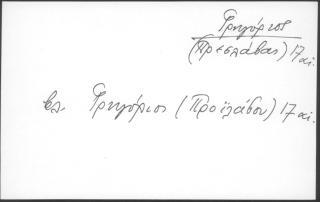 Γρηγόριος
(Πρεσλάβας) 17 αι.
βλ. Γρηγόριος (Προϊλάβου) 17 αι.